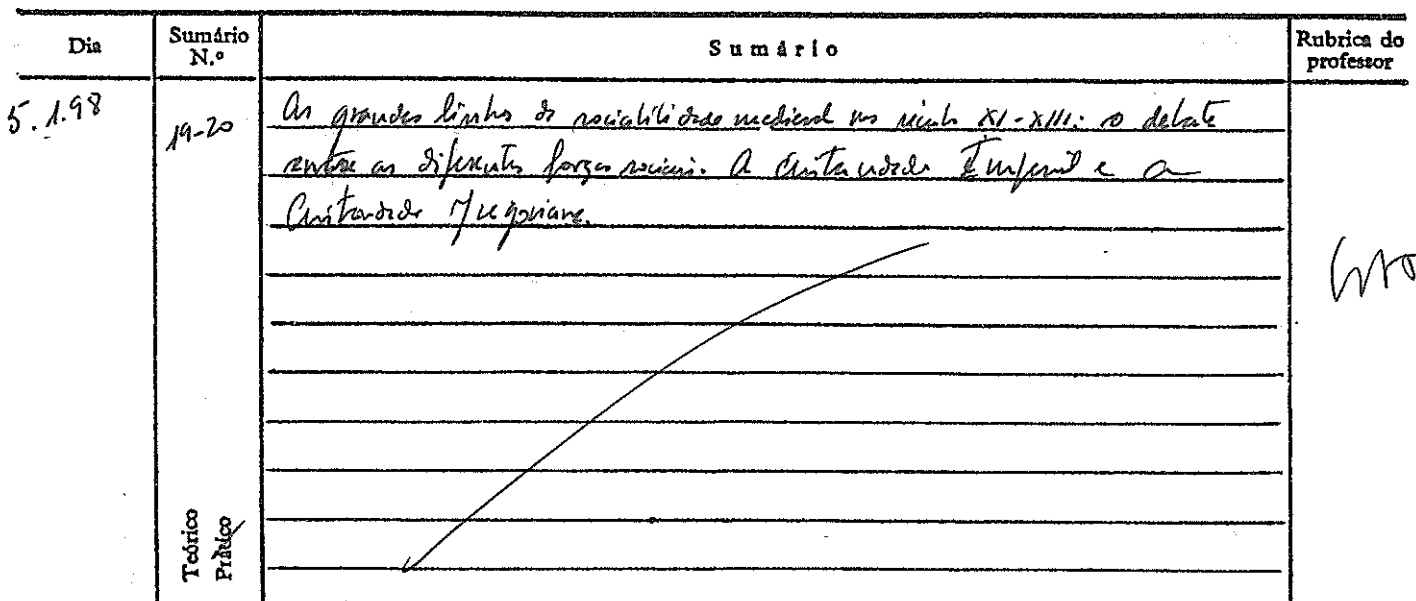 Dia
Sumário N.º
Sumário
Rubrica do professor
5.1.98
19-20
As grandes linhas da sociabilidade medieval nos séculos XI-XIII: o debate
entre as diferentes forças sociais. A Cristandade Imperial e a
Cristandade Gregoriana.
Teórico
Prático